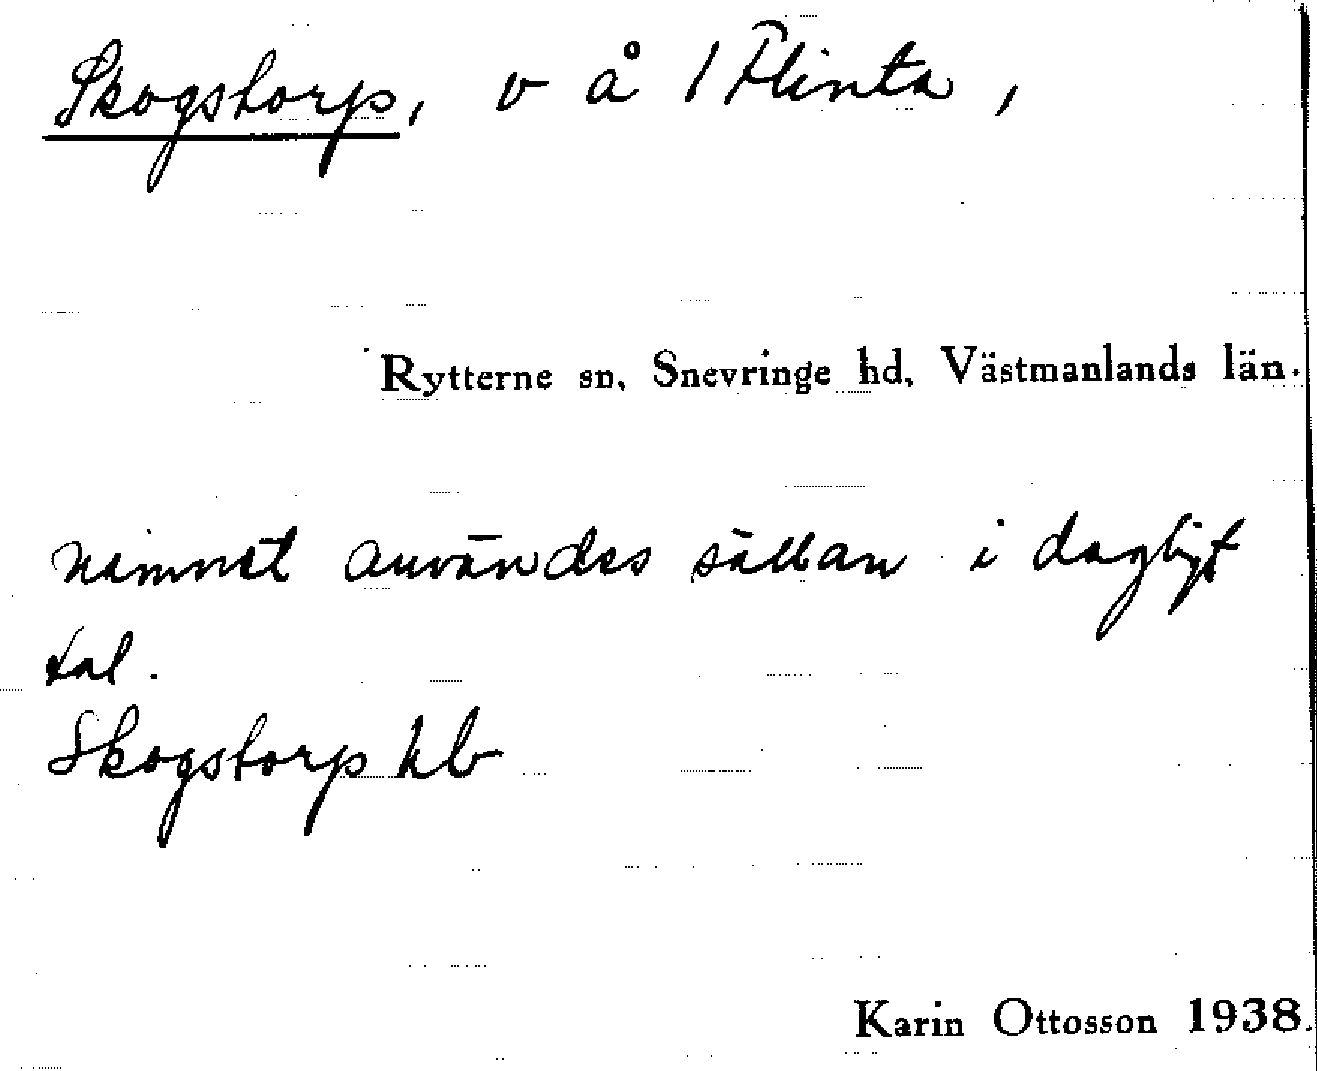 Skogstorp, v å 1 Flinta,
Rytterne sn, Snevringe hd, Västmanlands län.
namnet användes sällan i dagligt
tal.
Skogstorp hb
Karin Ottosson 1938.